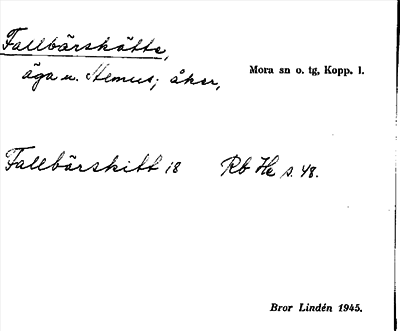 Fallbärskätte,
äga u. Hemus; åker,
Mora sn o. tg, Kopp. l.
Fallbärskitt 18 Rb He s. 48.
Bror Lindén 1945.